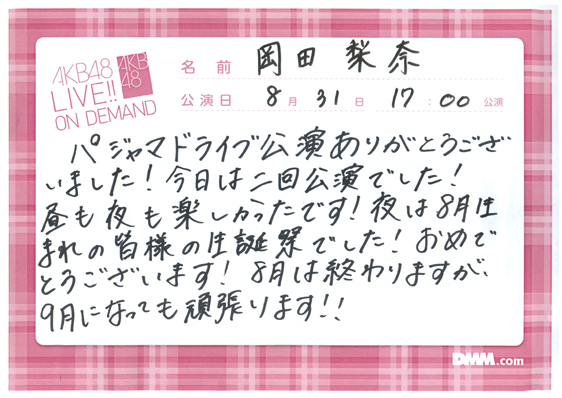 AKB48
LIVE!!
ON DEMAND
AKB
48
名前 岡田梨奈
公演日 8月31日 17:00公演
パジャマドライブ公演ありがとうござ
いました！今日は二回公演でした！
昼も夜も楽しかったです！夜は8月生
まれの皆様の生誕祭でした！おめで
とうございます！8月は終わりますが、
9月になっても頑張ります！！
DMM.com